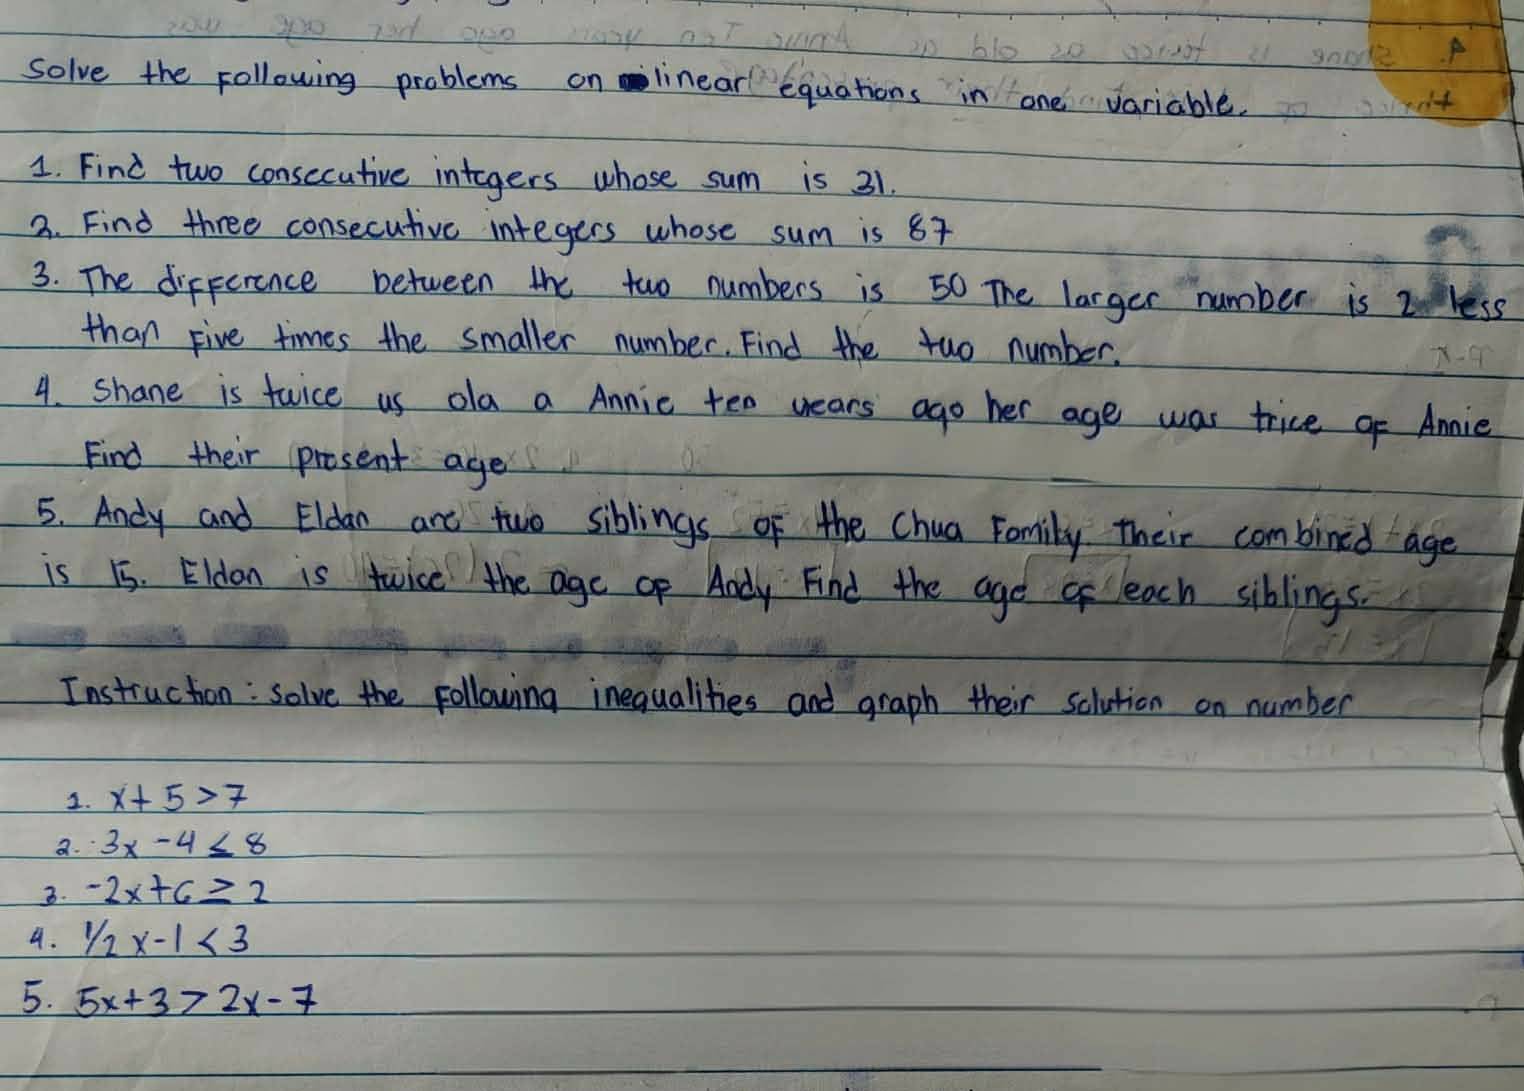 Solve the following problems on linear equations in one variable.
1. Find two consecutive integers whose sum is 31.
2. Find three consecutive integers whose sum is 87
3. The difference between the two numbers is 50 The larger number is 2 less
than five times the smaller number. Find the two number.
4. Shane is twice us ola a Annie ten years ago her age was trice of Annie
Find their present age
5. Andy and Eldan are two siblings of the Chua Family. Their combined age
is 15. Eldan is twice the age of Andy Find the age of each siblings.
Instruction: Solve the following inequalities and graph their solution on number
1. x+5>7
2. 3x-4≤8
3. -2x+6≥2
4. 1/2x-1<3
5. 5x+3>2x-7